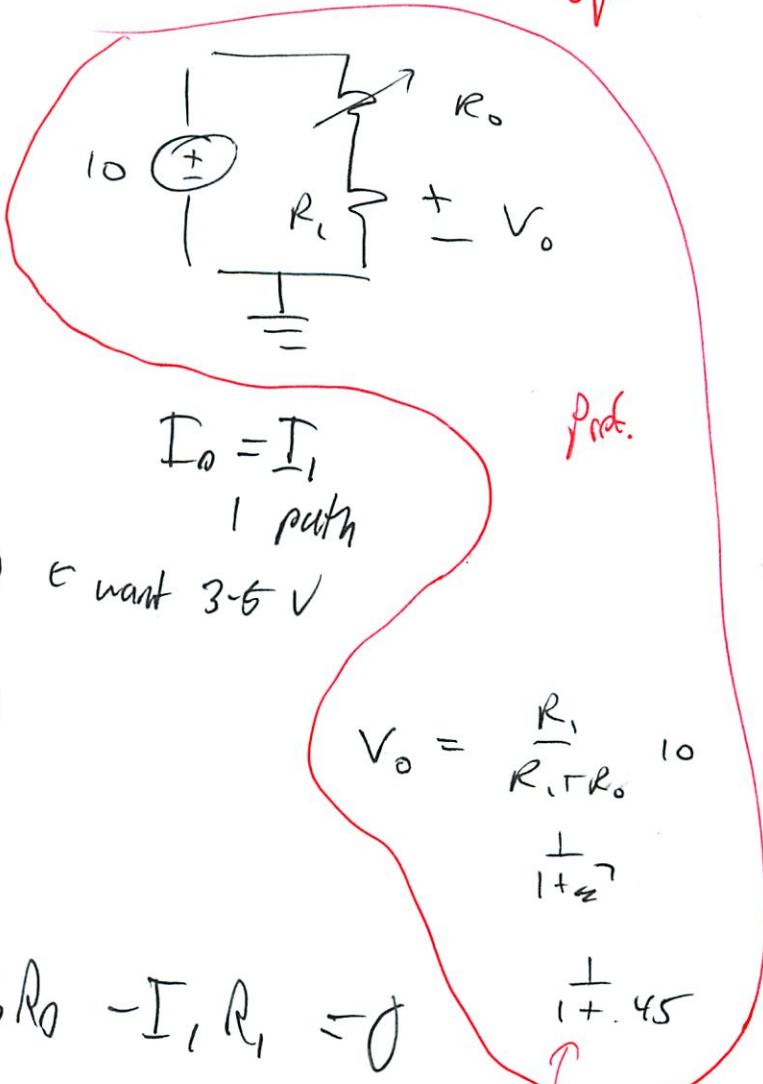 R₀
10 + −
R₁ + − V₀
I₀ = I₁
1 path
← want 3-5 V
V₀ = R₁ / (R₁ + R₀) 10
1 / (1 +
1 / (1 + .45)
R₀ − I₁ R₁ = 0